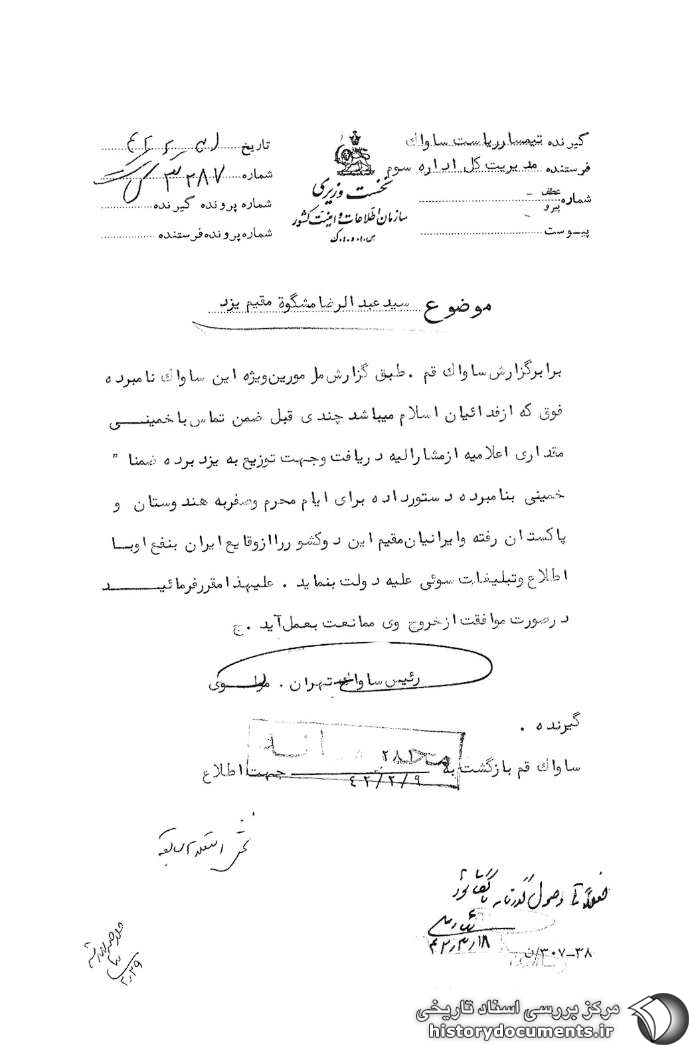 گیرنده تیمسار ریاست ساواك
فرستنده مدیریت کل اداره سوم
شماره عطف - پیرو -
پیـوست
نخست وزیری
سازمان اطلاعات و امنیت کشور
س.ا.و.ا.ک
تاریخ
شماره ۳۲۸۷
شماره پرونده گیرنده
شماره پرونده فرستنده
موضوع سید عبدالرضا مشگوة مقیم یزد
برابر گزارش ساواك قم . طبق گزارش مامورین ویژه این ساواك نامبرده
فوق که از فدائیان اسلام میباشد چندی قبل ضمن تماس با خمینـــی
مقداری اعلامیه از مشارالیه دریافت و جهت توزیع به یزد برده ضمنا "
خمینی بنامبرده دستور داده برای ایام محرم و صفر به هندوستان و
پاکستان رفته و ایرانیان مقیم این دو کشور را از وقایع ایران بنفع او با
اطلاع و تبلیغات سوئی علیه دولت بنماید . علیهذا مقرر فرمائیـــد
در صورت موافقت از خروج وی ممانعت بعمل آید . ج
رئیس ساواك تهران . مولـوی
گیرنده .
ساواك قم بازگشت به ۲۸۱ ۴۲/۲/۹ جهت اطلاع
محرمانه
فعلاً تا وصول گذرنامه بایگانی شود
۴۲/۳/۱۸
۳۸-۳۰۷/ن
۲/۲۹
مرکز بررسی اسناد تاریخی
historydocuments.ir